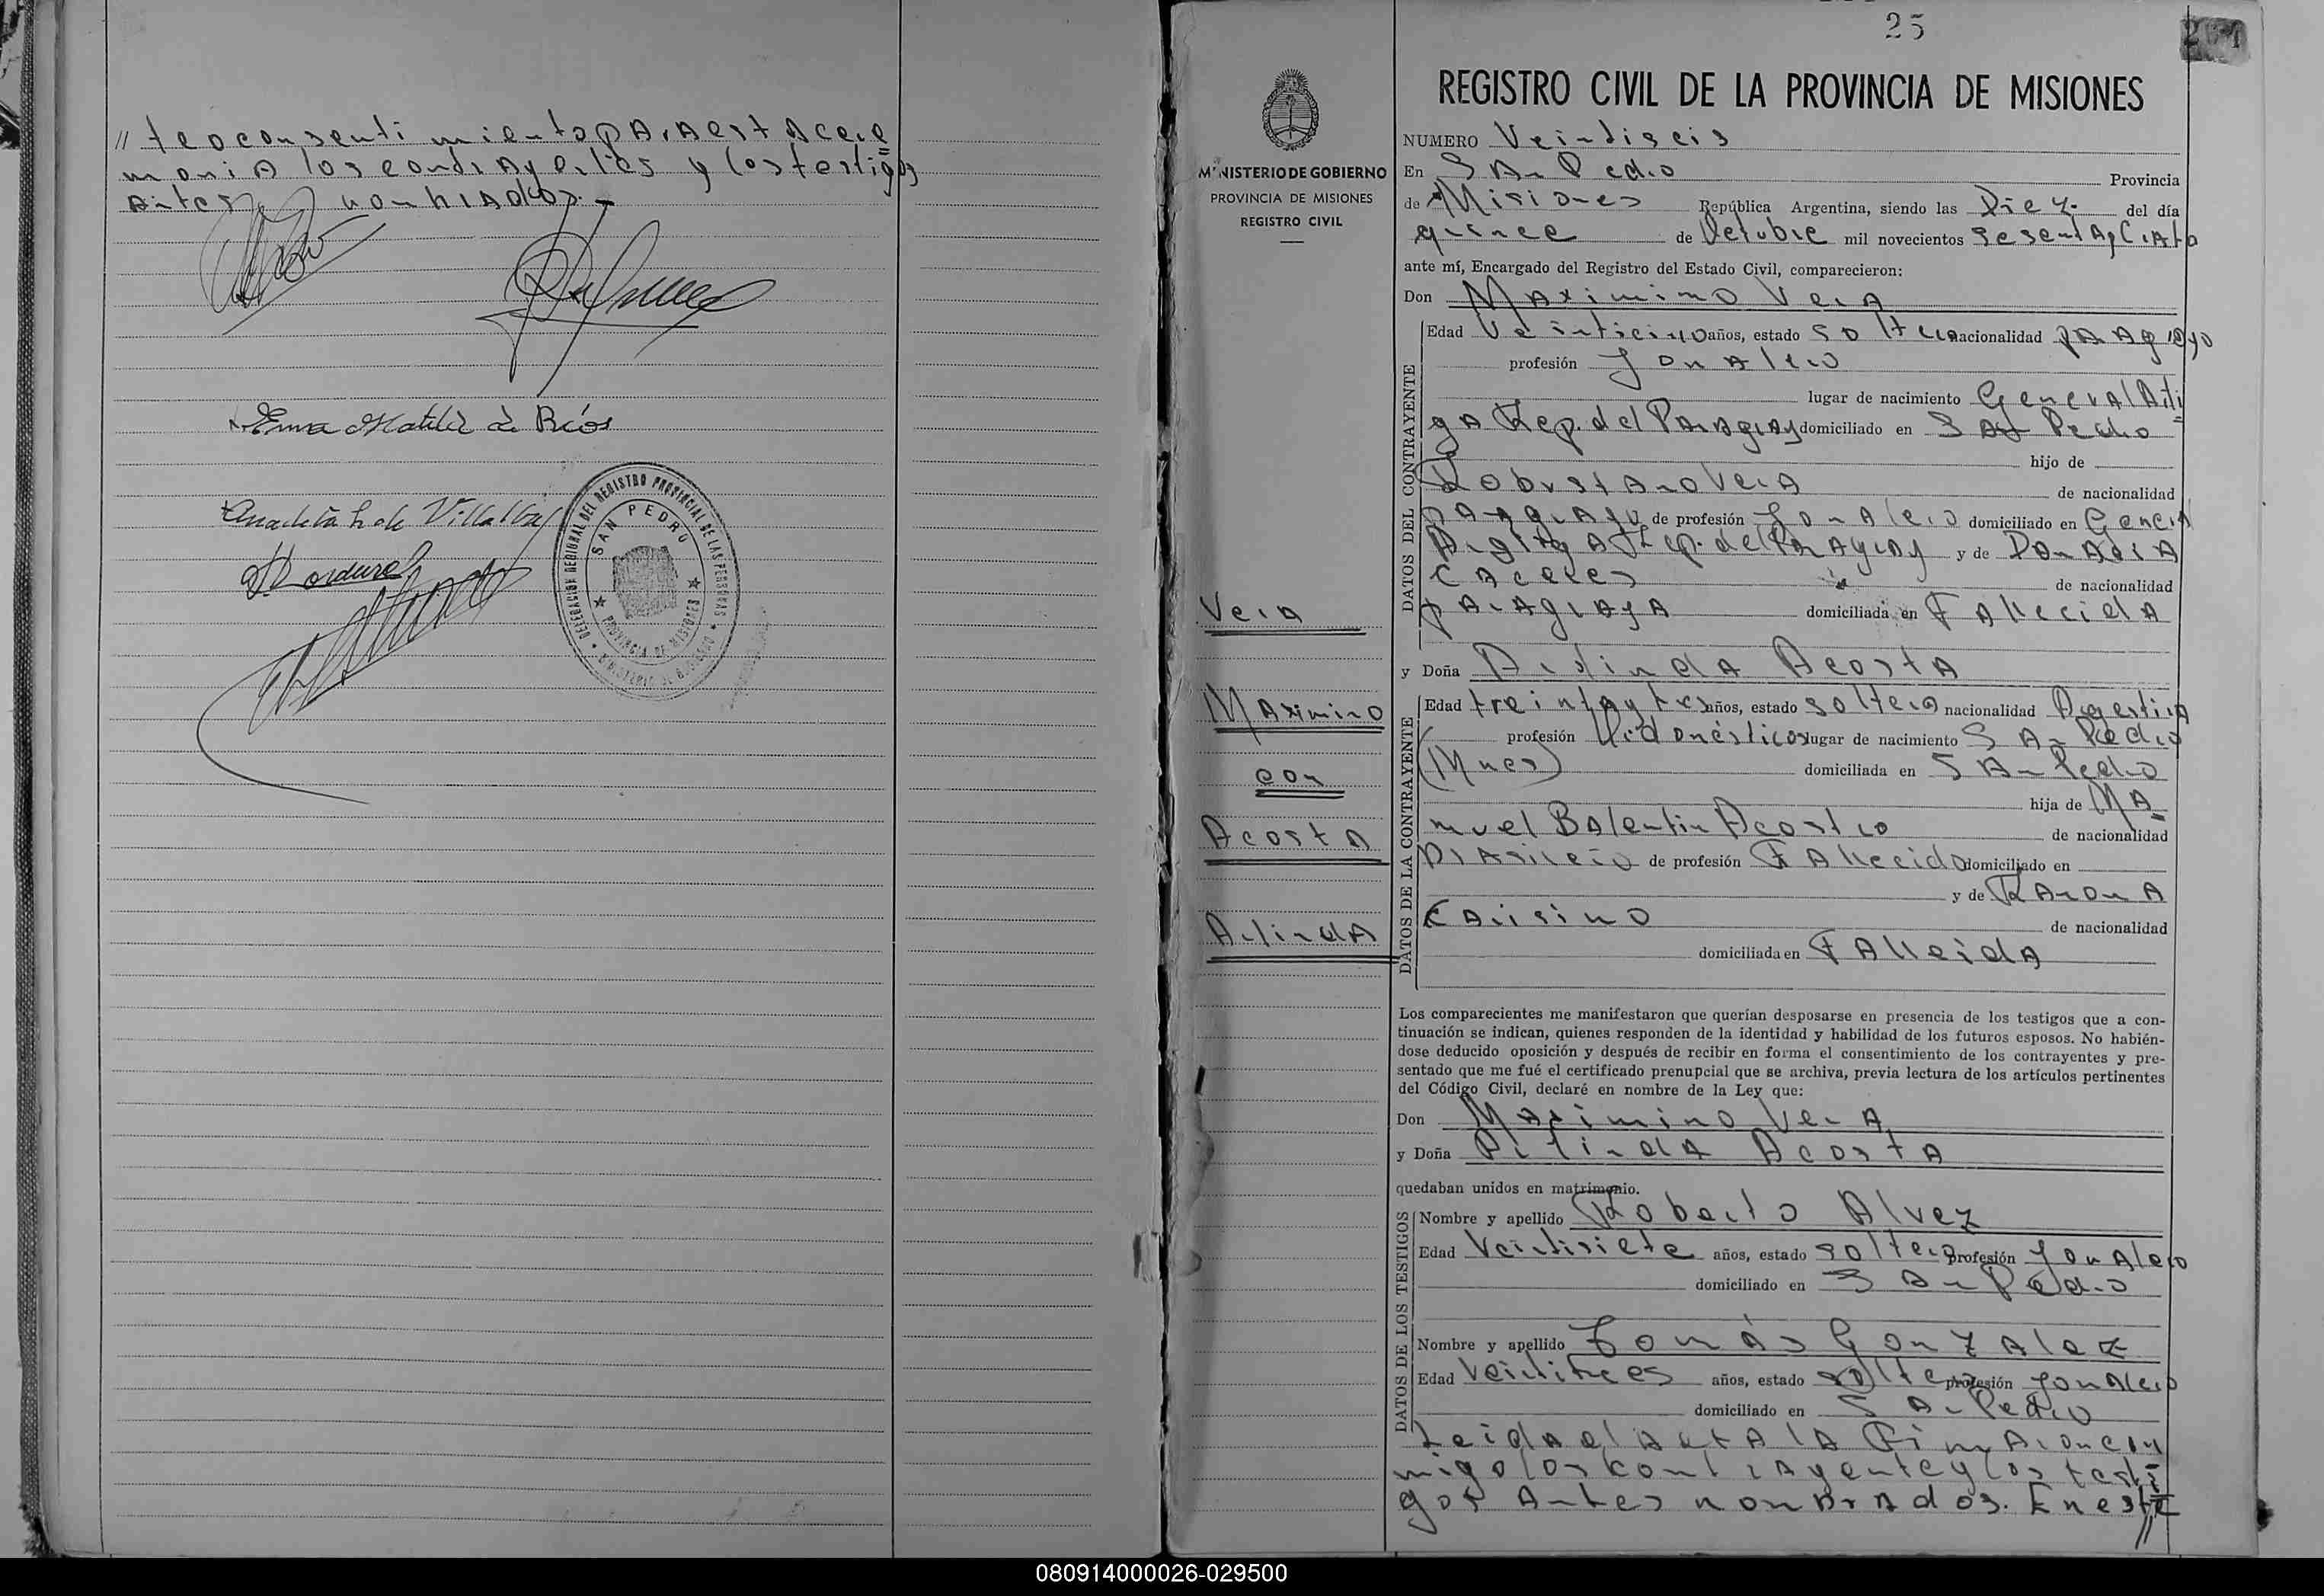 // teoconsentimientopArAestAcere
moniA loscontrAyentes y lostestigos
Antes nombrAdos.-
Ema Matilde de Ríos
de Villalba
DELEGACION REGIONAL DEL REGISTRO PROVINCIAL DE LAS PERSONAS
SAN PEDRO
PROVINCIA DE MISIONES
MINISTERIO DE GOBIERNO
25
REGISTRO CIVIL DE LA PROVINCIA DE MISIONES
MINISTERIO DE GOBIERNO
PROVINCIA DE MISIONES
REGISTRO CIVIL
NUMERO Veintiseis
En SAn Pedro Provincia
de Misiones República Argentina, siendo las Diez. del día
quince de Octubre mil novecientos sesentAyCuAtro
ante mí, Encargado del Registro del Estado Civil, comparecieron:
Don MAximino VerA
DATOS DEL CONTRAYENTE
Edad Veinticinco años, estado soltero nacionalidad pArAguAyo
profesión JornAlero
lugar de nacimiento GenerAlArti
gA Rep. del PArAguAy domiciliado en SAn Pedro
hijo de
RobustAnoVerA de nacionalidad
pArAguAyo de profesión JornAlero domiciliado en GenerA
ArtigA Rep. del PArAguAy y de
CAceres de nacionalidad
pArAguAyA domiciliada en FAllecidA
y Doña ArlindA AcostA
DATOS DE LA CONTRAYENTE
Edad treintAytres años, estado solterA nacionalidad ArgentinA
profesión Q.domésticos lugar de nacimiento SAn Pedro
(Mnes) domiciliada en SAn Pedro
hija de MA
nuel BAlentin Acosta de nacionalidad
brAsileño de profesión FAllecido domiciliado en
y de RAmonA
CArisino de nacionalidad
domiciliada en FAlleidA
Los comparecientes me manifestaron que querían desposarse en presencia de los testigos que a con-
tinuación se indican, quienes responden de la identidad y habilidad de los futuros esposos. No habién-
dose deducido oposición y después de recibir en forma el consentimiento de los contrayentes y pre-
sentado que me fué el certificado prenupcial que se archiva, previa lectura de los artículos pertinentes
del Código Civil, declaré en nombre de la Ley que:
Don MAximino VerA
y Doña ArlindA AcostA
quedaban unidos en matrimonio.
DATOS DE LOS TESTIGOS
Nombre y apellido Roberto Alvez
Edad Veintisiete años, estado soltero profesión JornAlero
domiciliado en SAn Pedro
Nombre y apellido Tomás GonzAlez
Edad Veintitres años, estado soltero profesión jornAlero
domiciliado en SAn Pedro
LeidAelActA lA FirmAroncon
migoloscontrAyenteylos testi
gos Antes nombrAdos. Eneste
//
VerA
MAximino
con
AcostA
ArlindA
080914000026-029500